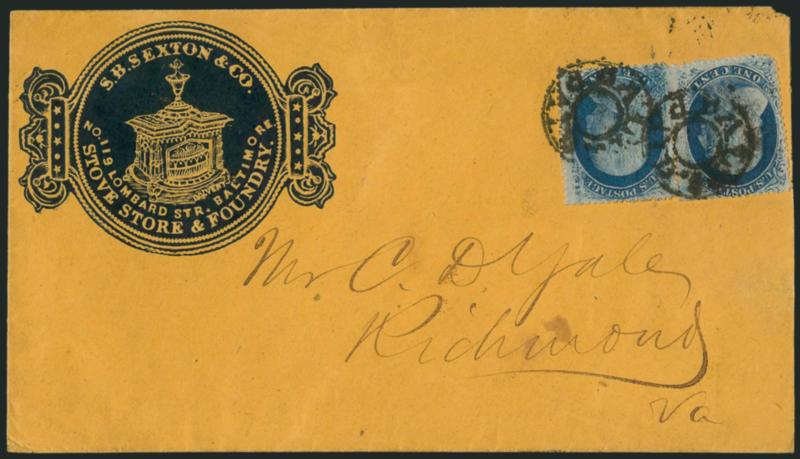 S.B. SEXTON & CO.
NO. 119 LOMBARD STR. BALTIMORE
STOVE STORE & FOUNDRY.
ONE CENT
U.S. POSTAGE
ONE CENT
U.S. POSTAGE
Mr C. D. Yale
Richmond
Va